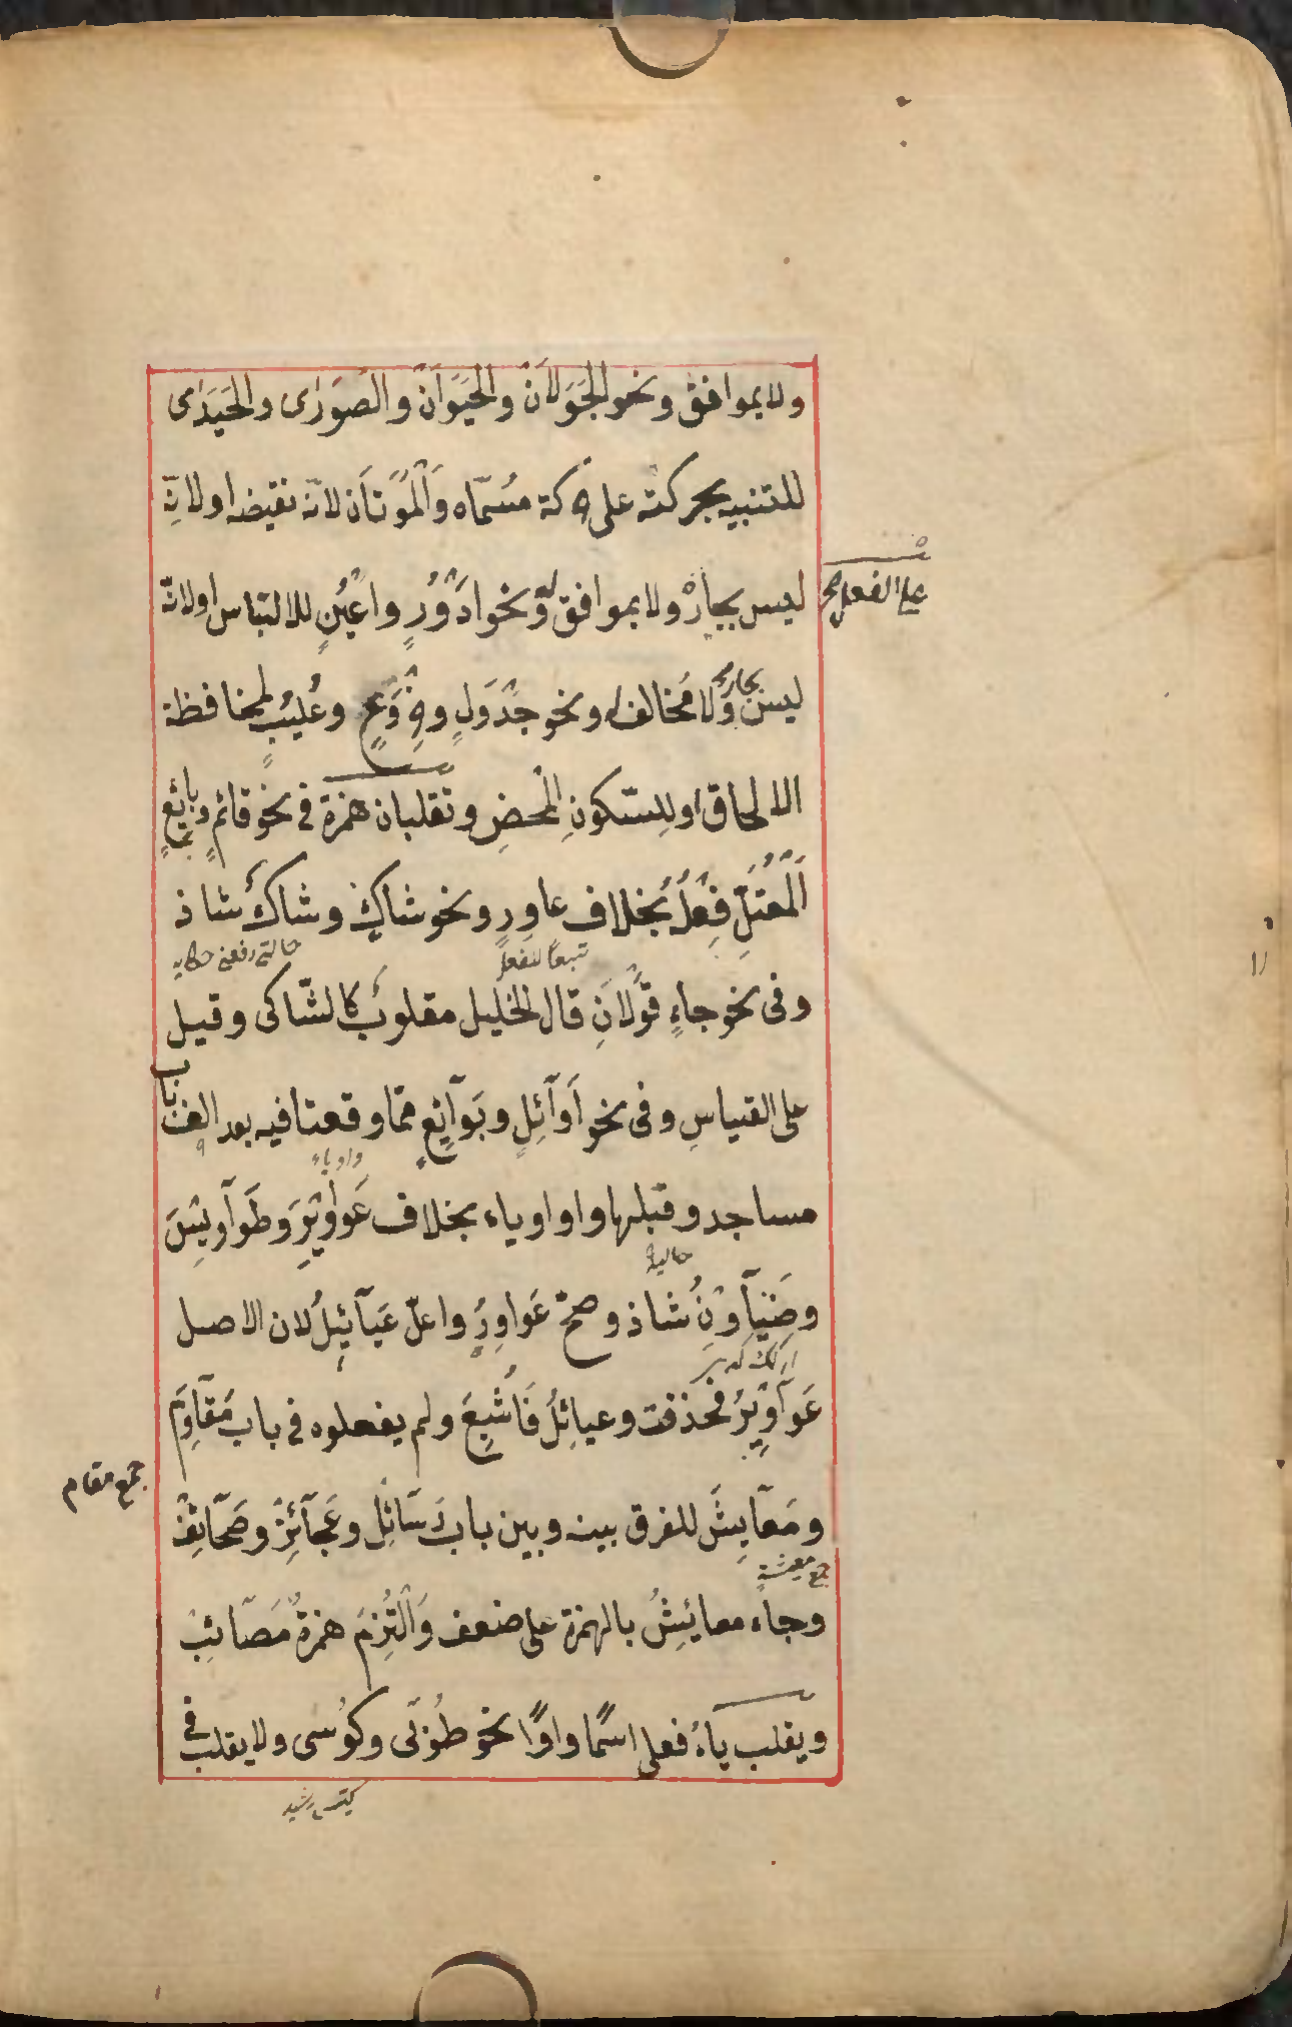 ولا بموافق ونحو الجَوَلَانِ والحَيَوَانِ والصَوَرَى والحَيَدَى
للتنبيه بحركته على حركة مسمّاه وَالْمَوَتَان لانّه نقيضه او لانّه
ليس بجارٍ ولا بموافق له ونحو ادْوُرٍ واعْيُنٍ للالتباس او لانّه
على الفعل صح
ليس بجار ولا مخالف ونحو جَدْوَلٍ وخِرْوَعٍ وعُلْيَبٍ لمحافظة
الالحاق او للسّكونِ المحضِ وتقلبان همزة في نحو قائمٍ وبائعٍ
الْمُعْتَلِّ فِعْلُهُ بخلاف عاوِرٍ ونحو شاكٍ وشاكٌ شاذ
تبعا للفعل
وفى نحو جاءٍ قَوْلَانِ قال الخليل مقلوبٌ كالشّاكى وقيل
على القياسِ وفى نحو اَوَآئِلَ وبَوَآئِعَ ممّا وقعتا فيه بعد الف باب
واو ياء
مساجد وقبلها واو او ياء بخلاف عَوَاوِيْرَ وطَوَآوِيسَ
وضَيَآوِنُ شاذ وصحّ عَوَاوِرُ واعلّ عَيَآئِيلُ لان الاصل
عَوَآوِيْرُ فحذفت وعيائِلُ فَاُشْبِعَ ولم يفعلوه في باب مَقَآوِمَ
جمع مقام
ومَعَآيِشَ للفرق بينه وبين باب رَسَآئِل وعَجَآئِزَ وصَحَآئِفَ
جمع معيشة
وجاء معائِشُ بالهمزة على ضعف وَالْتُزِمَ همزةُ مَصَآئِبَ
ويقلب ياءُ فعلى اسمًا واوًا نحو طُوْبَى وكُوْسَى ولا يقلب في